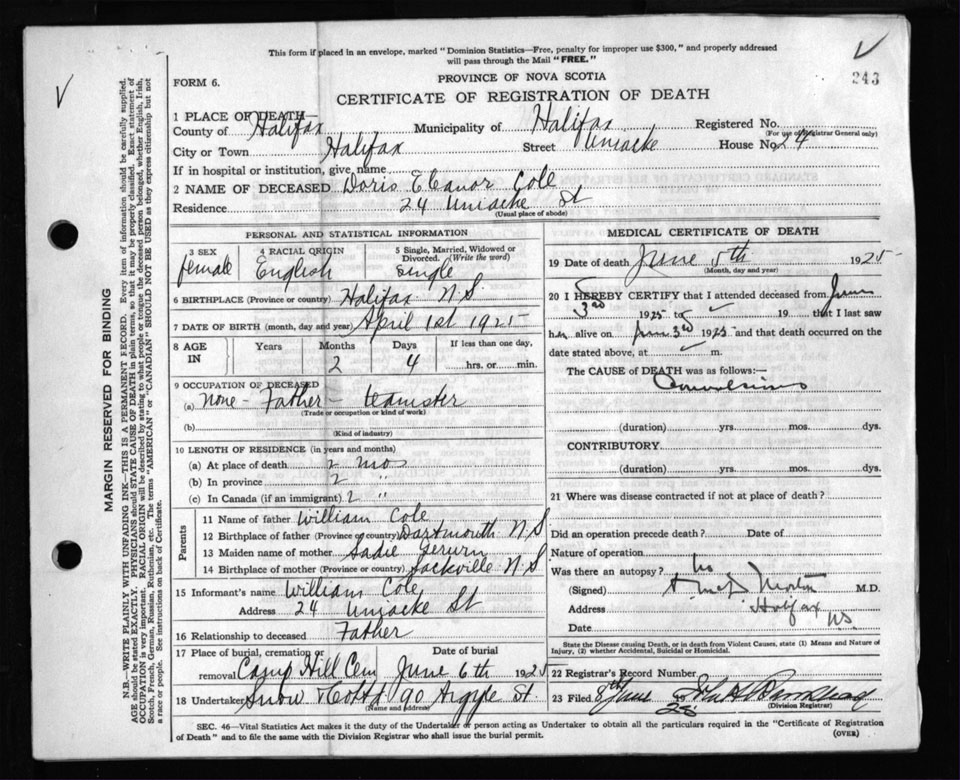 This form if placed in an envelope, marked "Dominion Statistics—Free, penalty for improper use $300," and properly addressed
will pass through the Mail "FREE."
243
FORM 6.
PROVINCE OF NOVA SCOTIA
CERTIFICATE OF REGISTRATION OF DEATH
1 PLACE OF DEATH—
County of Halifax Municipality of Halifax Registered No.
(For use of Registrar General only)
City or Town Halifax Street Uniacke House No. 24
If in hospital or institution, give name
2 NAME OF DECEASED Doris Eleanor Cole
Residence 24 Uniacke St
(Usual place of abode)
PERSONAL AND STATISTICAL INFORMATION
3 SEX 4 RACIAL ORIGIN 5 Single, Married, Widowed or
Divorced. (Write the word)
female English single
6 BIRTHPLACE (Province or country) Halifax N.S
7 DATE OF BIRTH (month, day and year) April 1st 1925
8 AGE IN Years Months Days If less than one day,
2 4 hrs. or min.
9 OCCUPATION OF DECEASED
(a) none - Father - teamster
(Trade or occupation or kind of work)
(b)
(Kind of industry)
10 LENGTH OF RESIDENCE (in years and months)
(a) At place of death 2 mo
(b) In province 2 "
(c) In Canada (if an immigrant) 2 "
Parents
11 Name of father William Cole
12 Birthplace of father (Province or country) Dartmouth N.S
13 Maiden name of mother Sadie
14 Birthplace of mother (Province or country) Sackville N S
15 Informant's name William Cole
Address 24 Uniacke St
16 Relationship to deceased Father
17 Place of burial, cremation or removal Date of burial
Camp Hill Cem June 6th 1925
18 Undertaker Snow & Co 90 Argyle St.
(Name and address)
MEDICAL CERTIFICATE OF DEATH
19 Date of death June 5th 1925
(Month, day and year)
20 I HEREBY CERTIFY that I attended deceased from June
3rd 1925 to 19 that I last saw
her alive on June 3rd 1925 and that death occurred on the
date stated above, at m.
The CAUSE of DEATH was as follows:—
Convulsions
(duration) yrs. mos. dys.
CONTRIBUTORY
(duration) yrs. mos. dys.
21 Where was disease contracted if not at place of death?
Did an operation precede death? Date of
Nature of operation
Was there an autopsy? no
(Signed) Morton M.D.
Address Halifax NS.
Date
State the Disease causing Death, or in death from Violent Causes, state (1) Means and Nature of
Injury, (2) whether Accidental, Suicidal or Homicidal.
22 Registrar's Record Number
23 Filed 8th June 25
(Division Registrar)
SEC. 46—Vital Statistics Act makes it the duty of the Undertaker or person acting as Undertaker to obtain all the particulars required in the "Certificate of Registration
of Death" and to file the same with the Division Registrar who shall issue the burial permit.
(OVER)
MARGIN RESERVED FOR BINDING
N.B.—WRITE PLAINLY WITH UNFADING INK—THIS IS A PERMANENT RECORD. Every item of information should be carefully supplied.
AGE should be stated EXACTLY. PHYSICIANS should STATE CAUSE OF DEATH in plain terms, so that it may be properly classified. Exact statement of
OCCUPATION is very important. RACIAL ORIGIN will be described by stating to what people or tongue the deceased person belonged, whether English, Irish,
Scotch, French, German, Russian, Ruthenian, etc. The terms "AMERICAN" or "CANADIAN" SHOULD NOT BE USED as they express citizenship but not
a race or people. See instructions on back of Certificate.